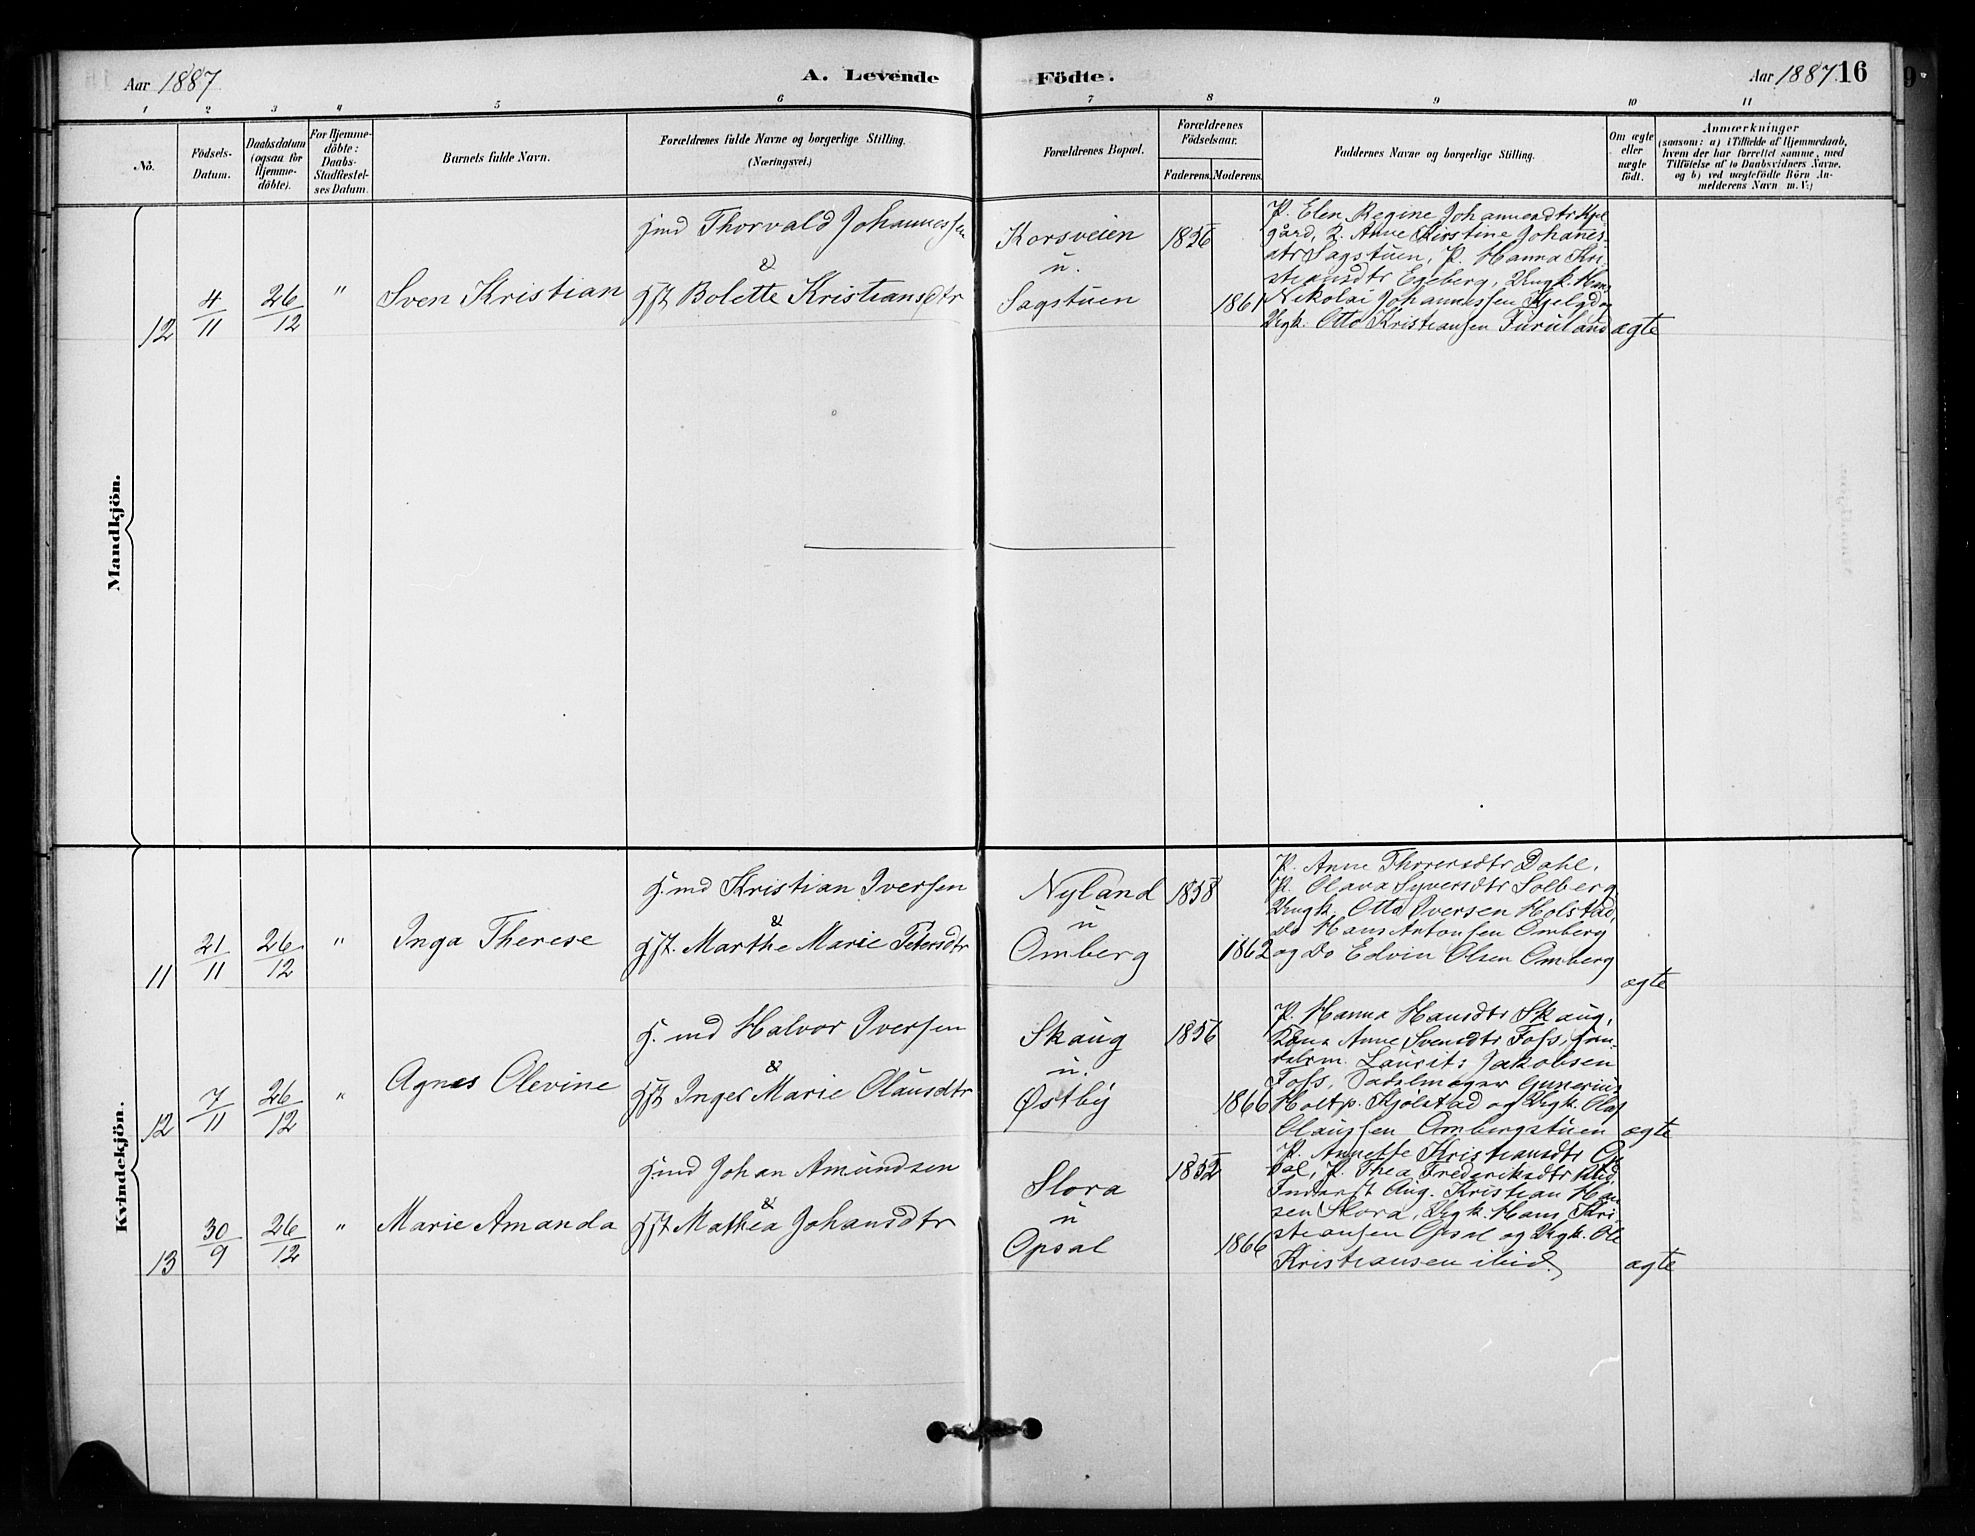 Aar 1887. A. Levende Fødte. Aar 1887. 16
1 2 3 4 5 6 7 8 9 10 11
No.
Fødsels-Datum.
Daabsdatum (ogsaa for Hjemme-døbte).
For Hjemme-døbte: Daabs-Stadfæstel-ses Datum.
Barnets fulde Navn.
Forældrenes fulde Navne og borgerlige Stilling.
(Næringsvei.)
Forældrenes Bopæl.
Forældrenes Fødselsaar.
Faderens. Moderens.
Faddernes Navne og borgerlige Stilling.
Om ægte eller uægte født.
Anmærkninger
(saasom: a) i Tilfælde af Hjemmedaab,
hvem der har forrettet samme, med
Tilføielse af to Daabsvidners Navne,
og b) ved uægtefødte Børn An-
melderens Navn m. V.)
Mandkjön.
12 4/11 26/12 " Sven Kristian
Gmd Thorvald Johannessen
&
Gft Bolette Kristiansdtr
Korsveien
u.
Sagstuen
1856 1861
P. Elen Regine Johannesdtr Kjel
gård, K. Anne Kirstine Johanes-
dtr Sagstuen, P. Hanna Kri
stiansdtr Egeberg, Ungk. Hans
Nikolai Johannessen Kjelgd og
Ungk. Otto Kristiansen Furuland
ægte
Kvindekjön.
11 21/11 26/12 " Inga Therese
G.md Kristian Iversen
&
Gft. Marthe Marie Petersdtr
Nyland
u
Omberg
1858 1862
P. Anne Thorersdtr Dahl,
P. Olava Syversdtr Solberg
Ungk. Otto Iversen Holstad,
Do Hans Antonsen Omberg
og Do Edvin Olsen Omberg
ægte
12 7/11 26/12 " Agnes Olevine
G.md Halvor Iversen
&
Gft Inger Marie Olausdtr
Skaug
u.
Østby
1856 1866
P. Hanna Hansdtr Skaug,
Kona Anne Svendtr Foss, Han-
delsm. Laurits Jakobsen
Foss, Sadelmager Gunerius
Holt p. Kjølstad og Ungk. Olaf
Olaussen Ombergstuen
ægte
13 30/9 26/12 " Marie Amanda
Gmd Johan Amundsen
&
Gft Mathea Johansdtr
Slora
u
Opsal
1852 1866
P. Annette Kristiansdtr Op
sal, P. Thea Frederiksdtr
Aug. Kristian Han
sen Slora, Ungk. Hans Kri-
stiansen Opsal og Ungk. Ole
Kristiansen ibid.
ægte